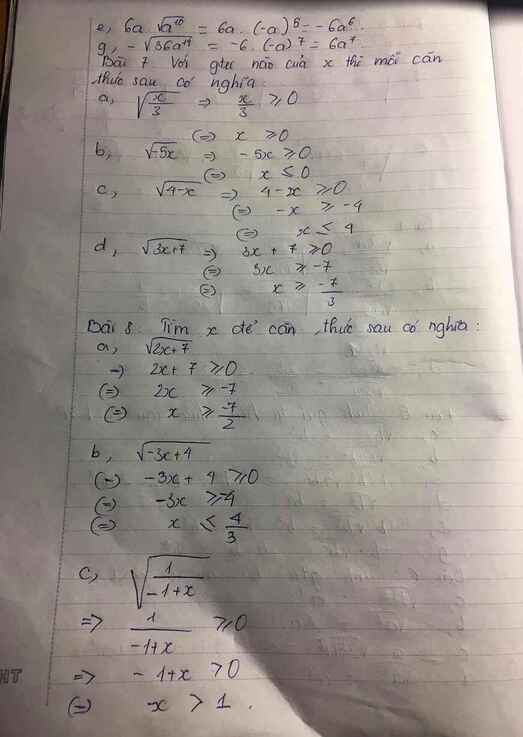 e, 6a √a¹⁰ = 6a . (-a)⁵ = -6a⁶.
g, - √36a¹⁴ = -6 . (-a)⁷ = 6a⁷.
Bài 7 Với gtrị nào của x thì mỗi căn
thức sau có nghĩa:
a, √(x/3) => x/3 ≥ 0
(=) x ≥ 0
b, √-5x => -5x ≥ 0
(=) x ≤ 0
c, √4-x => 4-x ≥ 0
(=) -x ≥ -4
(=) x ≤ 4
d, √3x+7 => 3x + 7 ≥ 0
(=) 3x ≥ -7
(=) x ≥ -7/3
Bài 8: Tìm x để căn thức sau có nghĩa:
a, √2x+7
-) 2x + 7 ≥ 0
(=) 2x ≥ -7
(=) x ≥ -7/2
b, √-3x+4
(-) -3x + 4 ≥ 0
(=) -3x ≥ -4
(=) x ≤ 4/3
c, √(1/-1+x)
=> 1/-1+x ≥ 0
=> -1+x > 0
(=) x > 1.